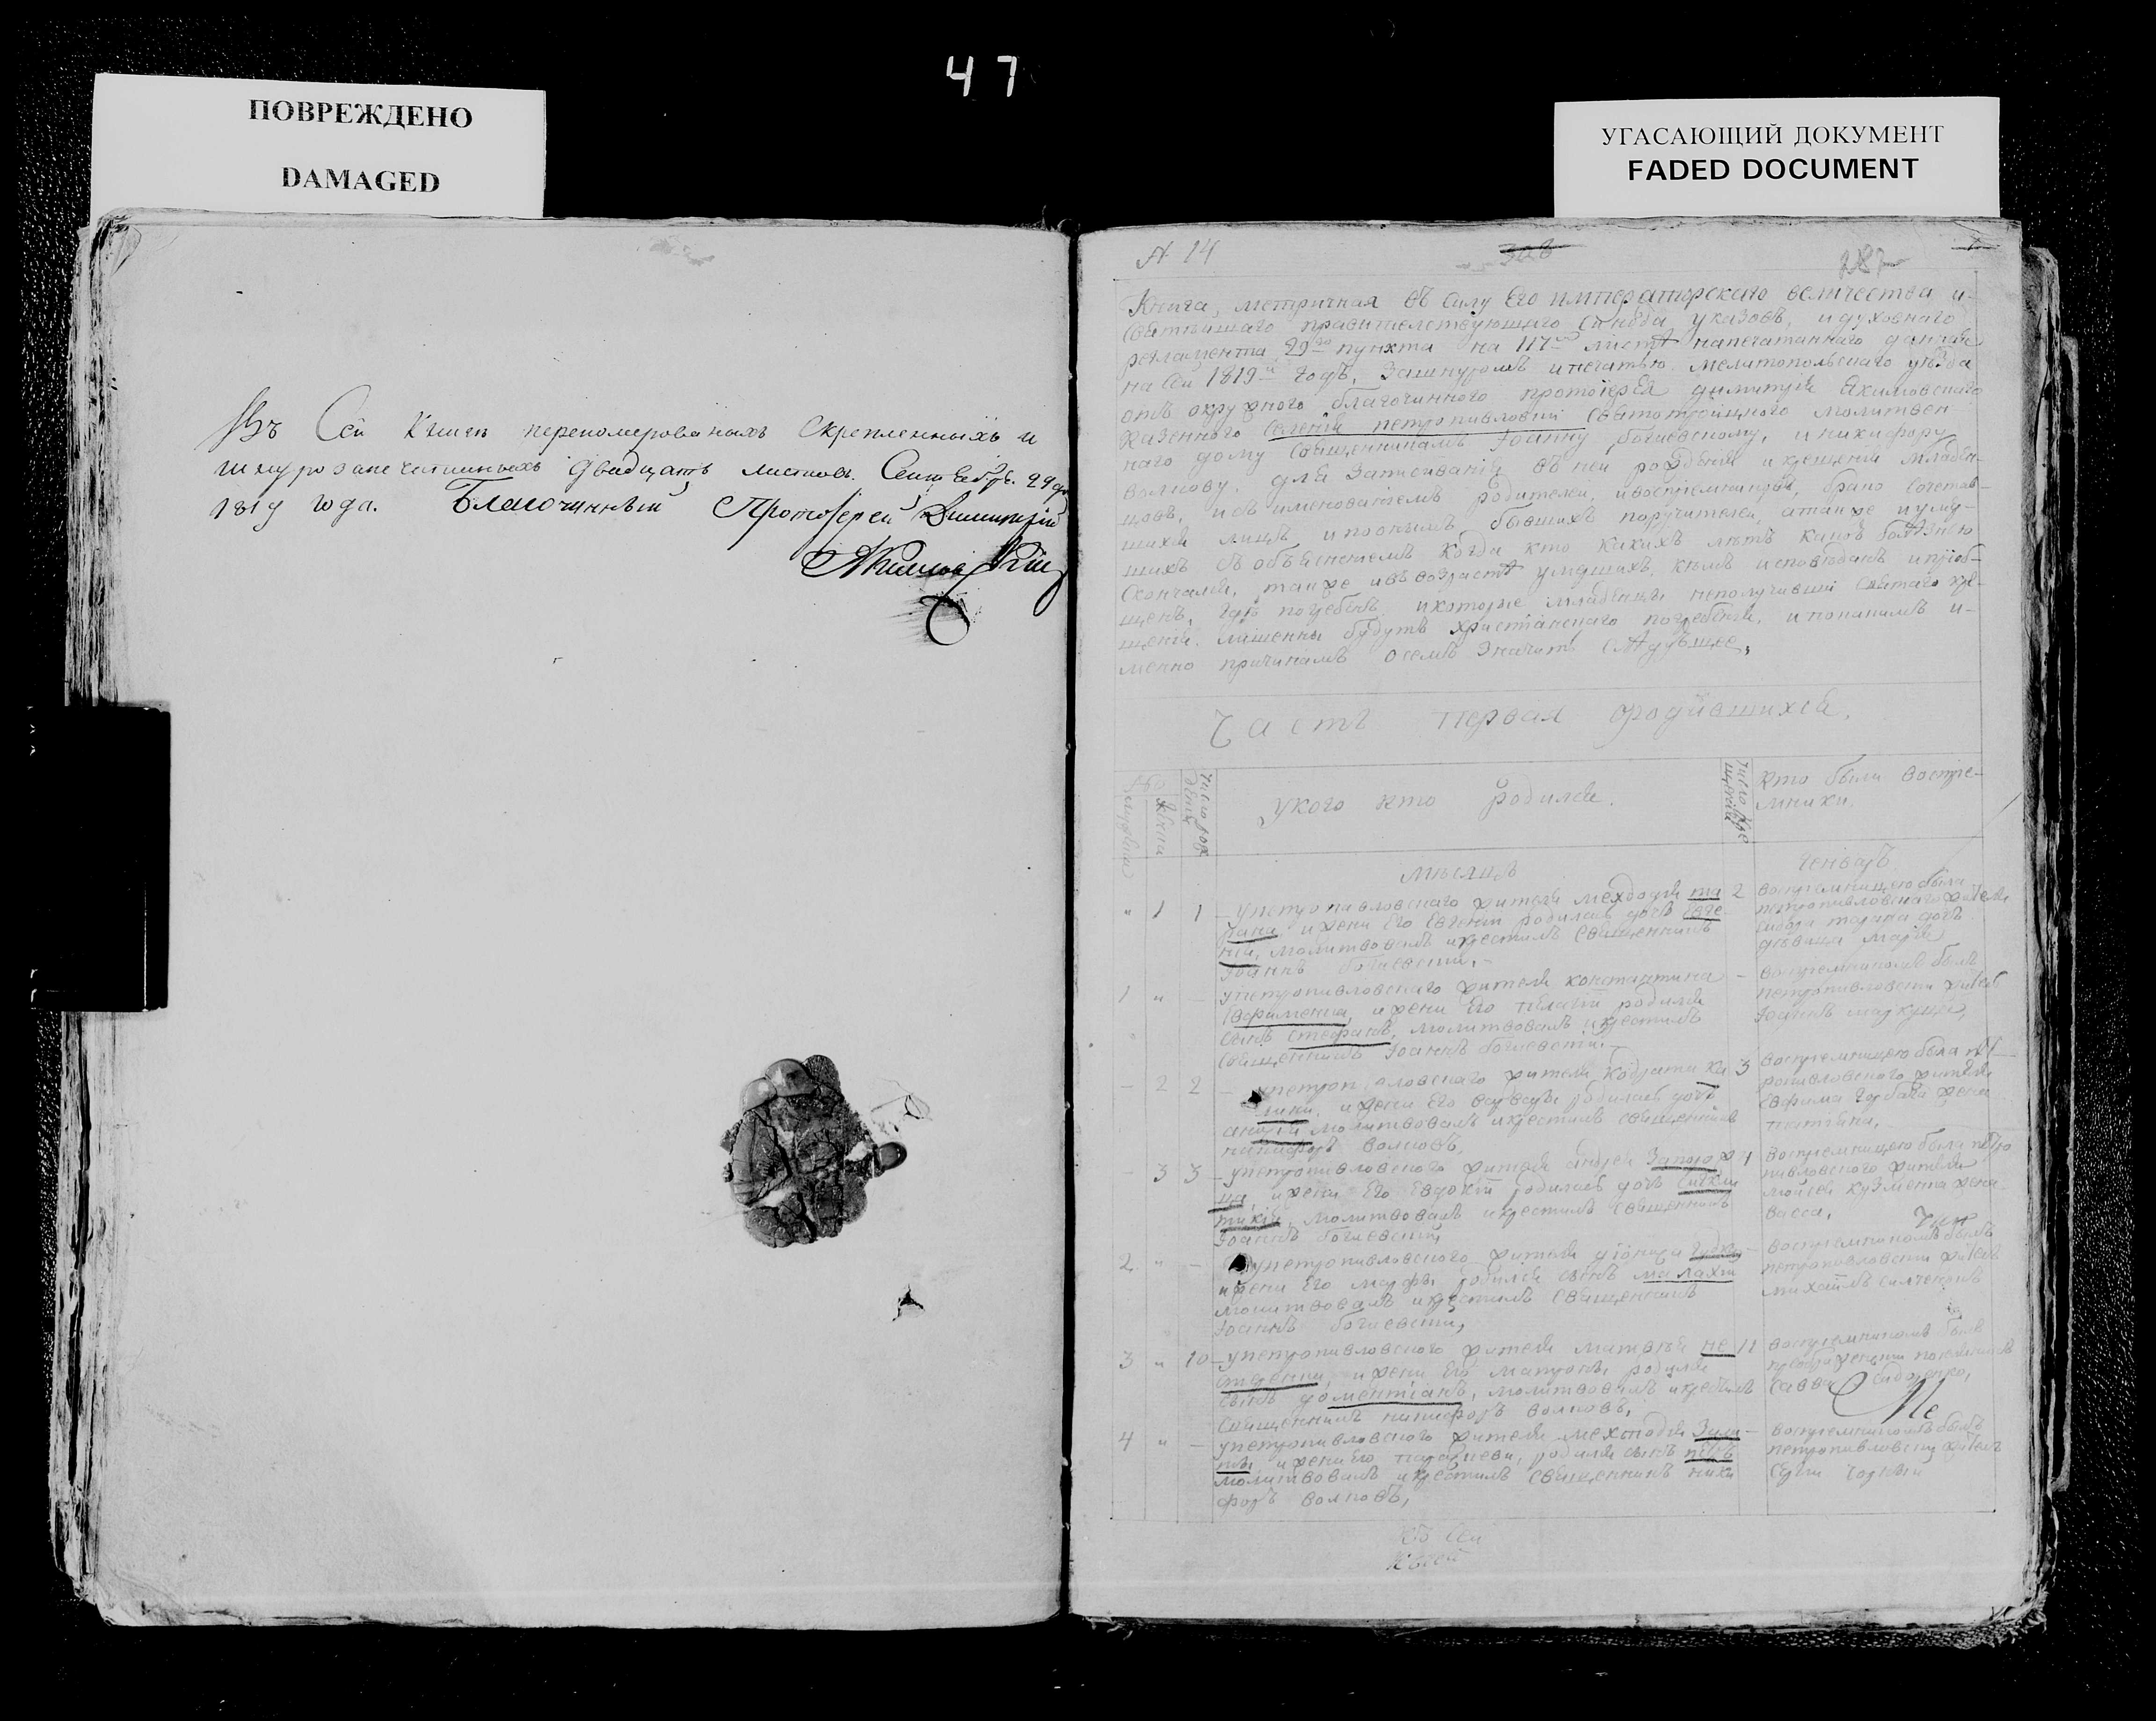 47
ПОВРЕЖДЕНО
DAMAGED
УГАСАЮЩИЙ ДОКУМЕНТ
FADED DOCUMENT
Въ Сей Книге перепомерованыхъ скрепленныхъ и
шнурозапечатанныхъ двадцать листовъ. Сентября. 29 д
1819 года. Благочинный Протоіерей Димитрій
№ 14
287
Книга, метричная въ силу Его императорскаго величества и-
святѣйшаго правителствующаго синода указовъ, и духовнаго
регламента 29го пункта на 117м листѣ напечатаннаго данная
на сей 1819й годъ, за шнуромъ и печатью мелитопольскаго уѣзда
отъ окружного благочинного протоіерея димитрія Екимовскаго
казенного селенія петропавловки святотроицкого молитвен
наго дому священникамъ Іоанну богаевскому, и никифору
волкову. для записиванія въ ней рожденія и крещенія младен-
цовъ, и съ именованіемъ родителей, и воспріемниковъ, брако сочетав-
шихся лицъ, и по онымъ бывшихъ поручителей, а также и умер-
шихъ съ объясненіемъ когда кто какихъ лѣтъ какою болезнею
скончался, также и въ возрастѣ умершихъ, кѣмъ исповѣданъ и пріоб-
щенъ, гдѣ погребенъ, и которые младенцы неполучивши святаго кре-
щенія, лишенны будутъ христіанскаго погребенія, и по какимъ и-
менно причинамъ о семъ значитъ слѣдующее,
Часть первая о родившихся.
у кого кто родился.
кто были воспріе-
мники.
мѣсяцъ
генварь
1 1 — у петропавловского жителя мехводія та 2
рана, и жены Его Евгеніи родилась дочь Евге
нія, молитвовалъ и крестилъ священникъ
Іоаннъ богаевскій,-
воспріемницею была
петропавловскаго жителя
дочь
дѣвица марія
1 — у петропавловскаго жителя константина
Ефименка, и жены Его пелагіи родился
сынъ стефанъ, молитвовалъ и крестилъ
священникъ Іоаннъ богаевскій.—
воспріемникомъ былъ
петропавловскій житель
Іоаннъ
— 2 2 — жителя кодрата 3
и жены Его варвары родилась дочь
молитвовалъ и крестилъ священникъ
никифоръ волковъ,
воспріемницею была пет
ропавловского жителя
Ефима жена
татьяна,
— 3 3 — у петропавловского жителя андрея запорож 4
ца, и жены Его Евдокіи родилась дочь синкли
тикія, молитвовалъ и крестилъ священникъ
Іоаннъ богаевскій
воспріемницею была петро
павловского жителя
моисея кузменка жена
васса,
2 — у петропавловского жителя
и жены Его марфы родился сынъ малахій
молитвовалъ и крестилъ священникъ
Іоаннъ богаевскій,
воспріемникомъ былъ
петропавловскій житель
михаилъ
3 10 — у петропавловского жителя матвѣя не 11
стеренка, и жены Его матроны родился
сынъ доментіанъ, молитвовалъ и крестилъ
священникъ никифоръ волковъ,
воспріемникомъ былъ
савва сидоренко,
4 — у петропавловского жителя мехводія
и жены Его параскеви, родился сынъ петръ
молитвовалъ и крестилъ священникъ ники
форъ волковъ,
воспріемникомъ былъ
петропавловскій житель